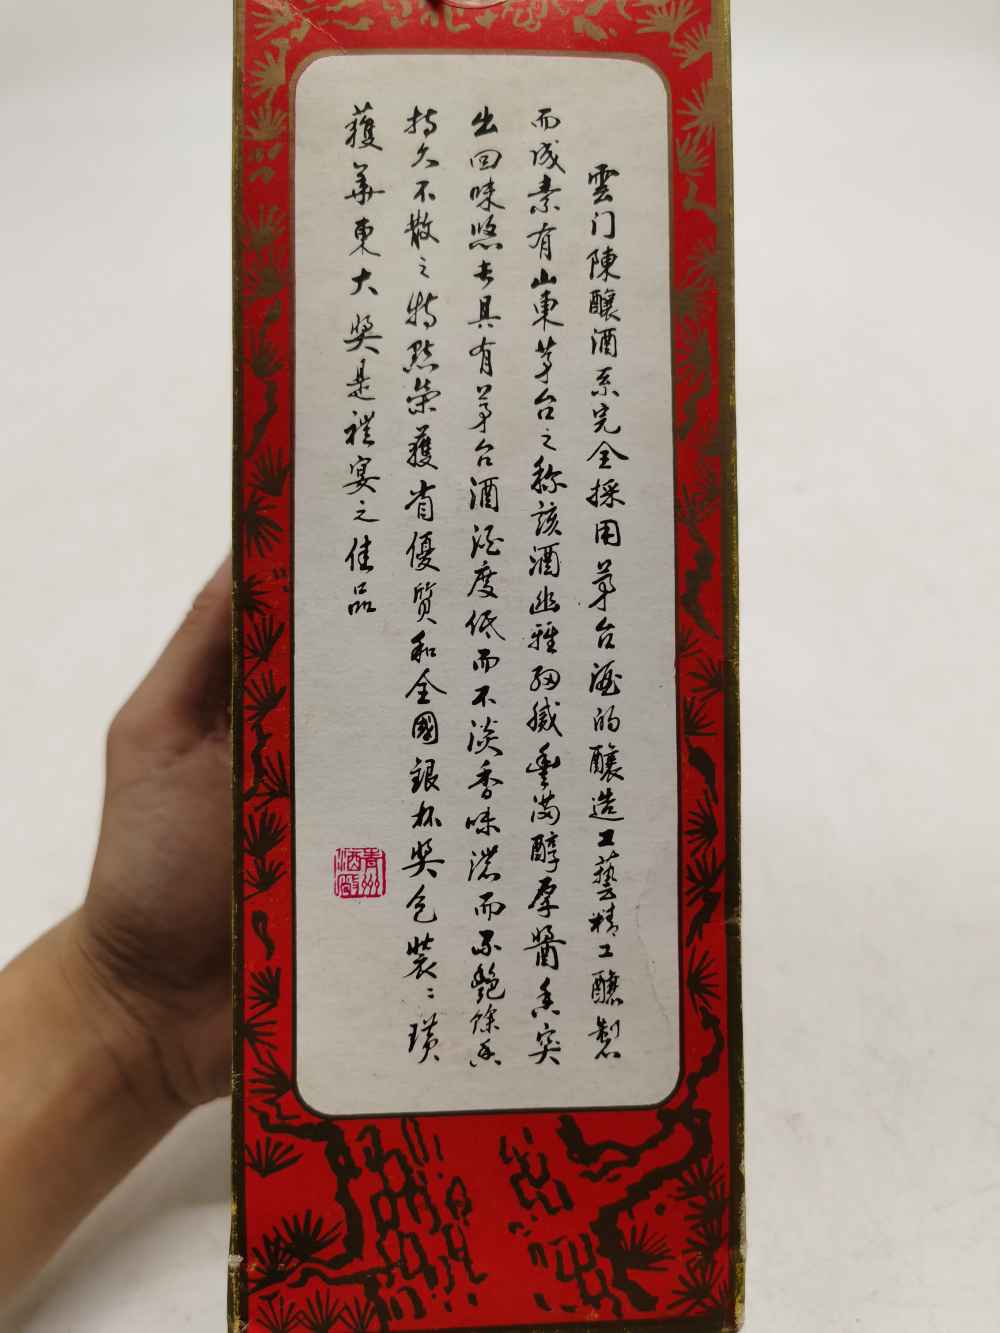 雲门陳釀酒系完全採用茅台酒的釀造工藝精工釀製
而成素有山東茅台之称該酒幽雅细膩豊满醇厚醬香突
出回味悠長具有茅台酒酒度低而不淡香味濃而不艷馀香
持久不散之特點榮獲省優質和全國銀杯奖包装装璜
獲華東大奖是禮宴之佳品
青州
酒厰